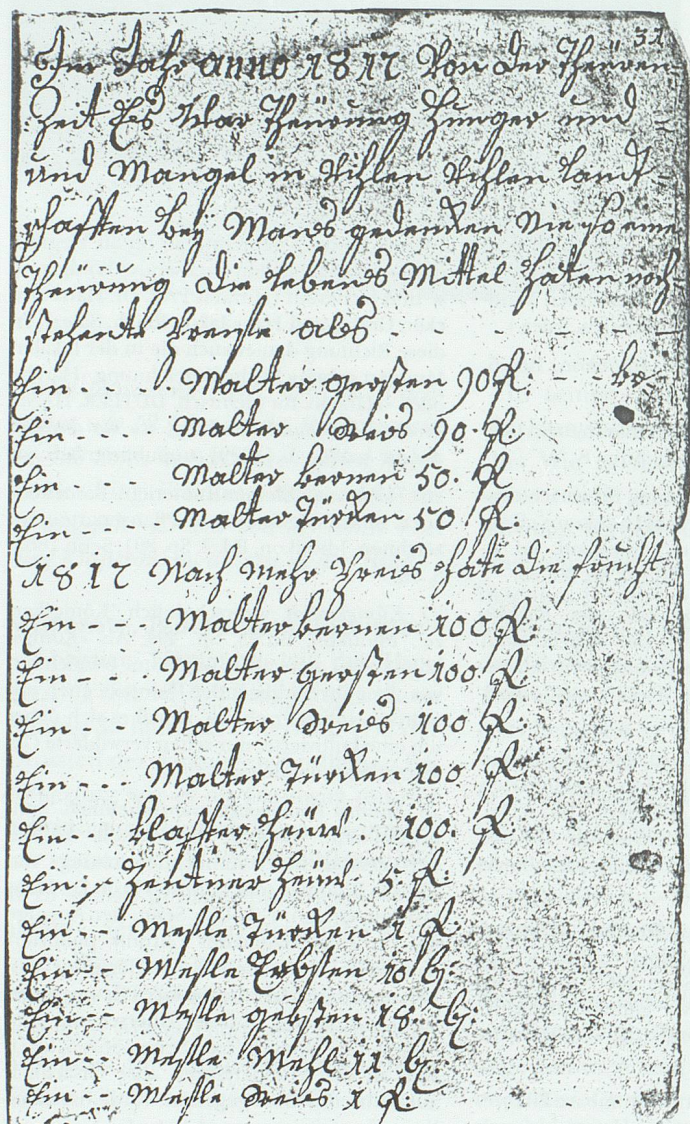 31
Im Jahr anno 1817 Von der Theuren
Zeit Es War Theurung Hunger und
und Mangel in Vihlen Vihlen landt
schafften bey Mans gedencken Nie so eine
Theurung die lebens Mittel haten noch
stehente Preise als
Ein Malter gersten 90 fl:
Ein Malter Reis 90. fl:
Ein Malter kernen 50. fl
Ein Malter Türcken 50 fl:
1817 Noch mehr Preis hate die frucht
Ein Malter kernen 100 fl:
Ein Malter gersten 100 fl.
Ein Malter Reis 100 fl:
Ein Malter Türcken 100 fl
Ein klaffter Heüw. 100. fl
Ein Zentner Heüw 5 fl:
Ein Mesle Türcken 1 fl
Ein Mesle Erbsten 10 bz:
Ein Mesle gersten 18 bz:
Ein Mesle Mehl 11 bz.
Ein Mesle Reis 1 fl: